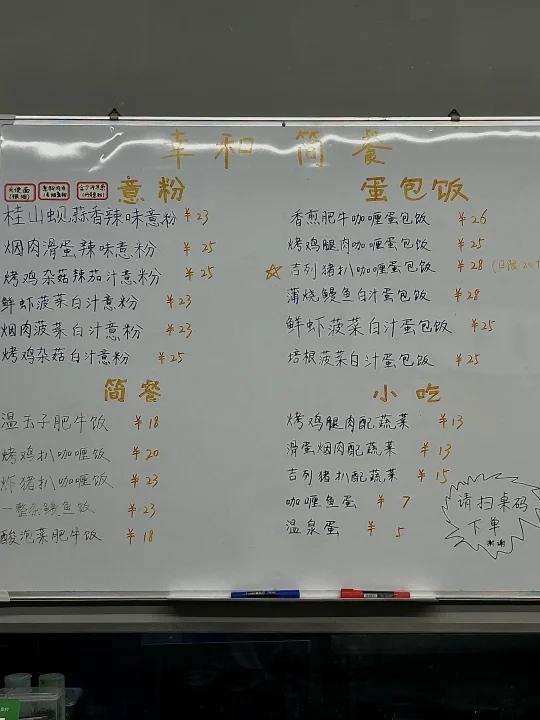 幸和简餐
意粉
桂山蚬蒜香辣味意粉 ¥23
烟肉滑蛋辣味意粉 ¥25
烤鸡杂菇辣茄汁意粉 ¥25
鲜虾菠菜白汁意粉 ¥23
烟肉菠菜白汁意粉 ¥23
烤鸡杂菇白汁意粉 ¥25
简餐
温玉子肥牛饭 ¥18
烤鸡扒咖喱饭 ¥20
炸猪扒咖喱饭 ¥23
一整条鳗鱼饭 ¥23
酸泡菜肥牛饭 ¥18
蛋包饭
香煎肥牛咖喱蛋包饭 ¥26
烤鸡腿肉咖喱蛋包饭 ¥25
吉列猪扒咖喱蛋包饭 ¥28
蒲烧鳗鱼白汁蛋包饭 ¥28
鲜虾菠菜白汁蛋包饭 ¥25
培根菠菜白汁蛋包饭 ¥25
小吃
烤鸡腿肉配蔬菜 ¥13
滑蛋烟肉配蔬菜 ¥13
吉列猪扒配蔬菜 ¥15
咖喱鱼蛋 ¥7
温泉蛋 ¥5
请扫桌码
下单
谢谢